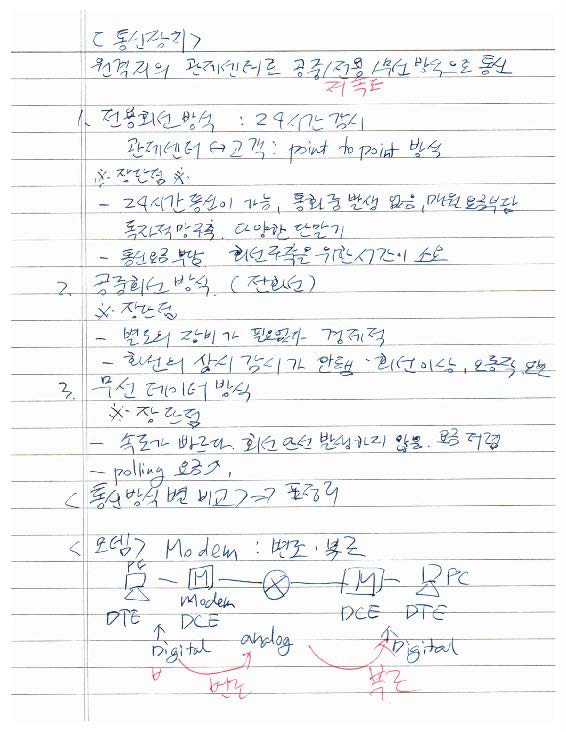 < 통신장치 >
원격지의 관제센터로 공중/전용/무선 방식으로 통신
저속도
1. 전용회선 방식 : 24시간 감시
관제센터 ↔ 고객 : point to point 방식
※ 장단점 ※
- 24시간 통신이 가능, 통화중 발생 없음, 매월 요금부담
독자적망구축, 다양한 단말기
- 통신요금 부담 회선구축을 위한 시간이 소요
2. 공중회선 방식. (전화선)
※ 장단점
- 별도의 장비가 필요없다 경제적
- 회선의 상시 감시가 안됨 회선이상, 오동작,
3. 무선 데이터 방식
※ 장단점
- 속도가 빠르다. 회선 단선 발생하지 않음. 요금 저렴
- polling 요금↑,
< 통신방식별 비교 > => 표정리
< 모뎀 > Modem : 변조·복조
PC M M PC
Modem
DTE DCE DCE DTE
Digital analog Digital
변조 복조